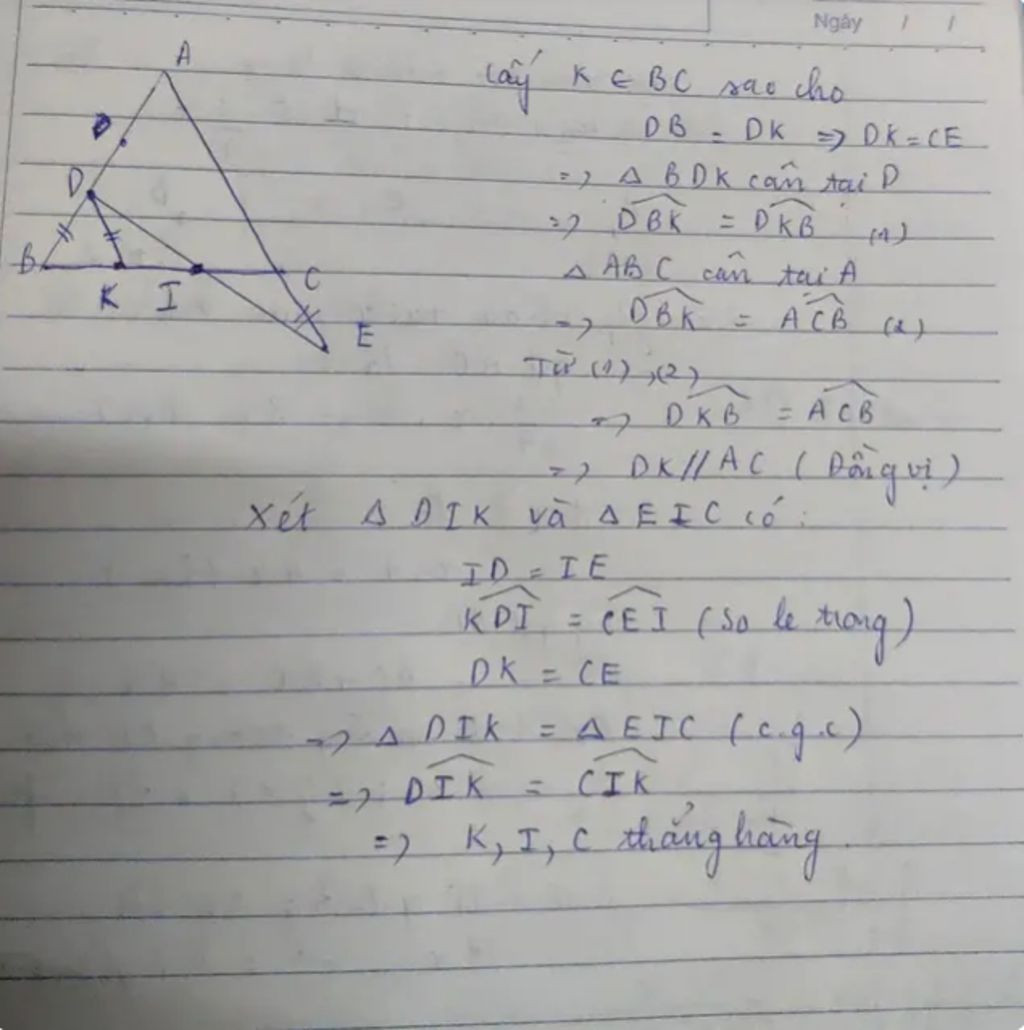 Ngày / /
A
D
B
K I
C
E
Lấy K ∈ BC sao cho
DB = DK => DK = CE
=> Δ BDK cân tại D
=> \widehat{DBK} = \widehat{DKB} (1)
Δ ABC cân tại A
=> \widehat{DBK} = \widehat{ACB} (2)
Từ (1), (2)
=> \widehat{DKB} = \widehat{ACB}
=> DK // AC (Đồng vị)
Xét Δ DIK và Δ EIC có:
ID = IE
\widehat{KDI} = \widehat{CEI} (So le trong)
DK = CE
=> Δ DIK = Δ EIC (c.g.c)
=> \widehat{DIK} = \widehat{CIK}
=> K, I, C thẳng hàng.